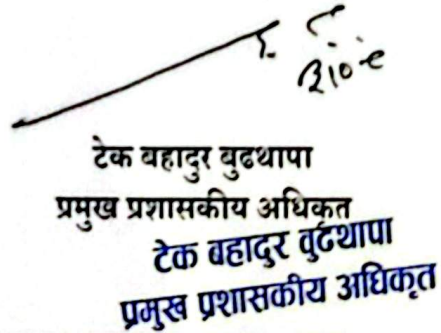 टेक बहादुर बुढथापा
प्रमुख प्रशासकीय अधिकृत
टेक बहादुर वुढथापा
प्रमुख प्रशासकीय अधिकृत